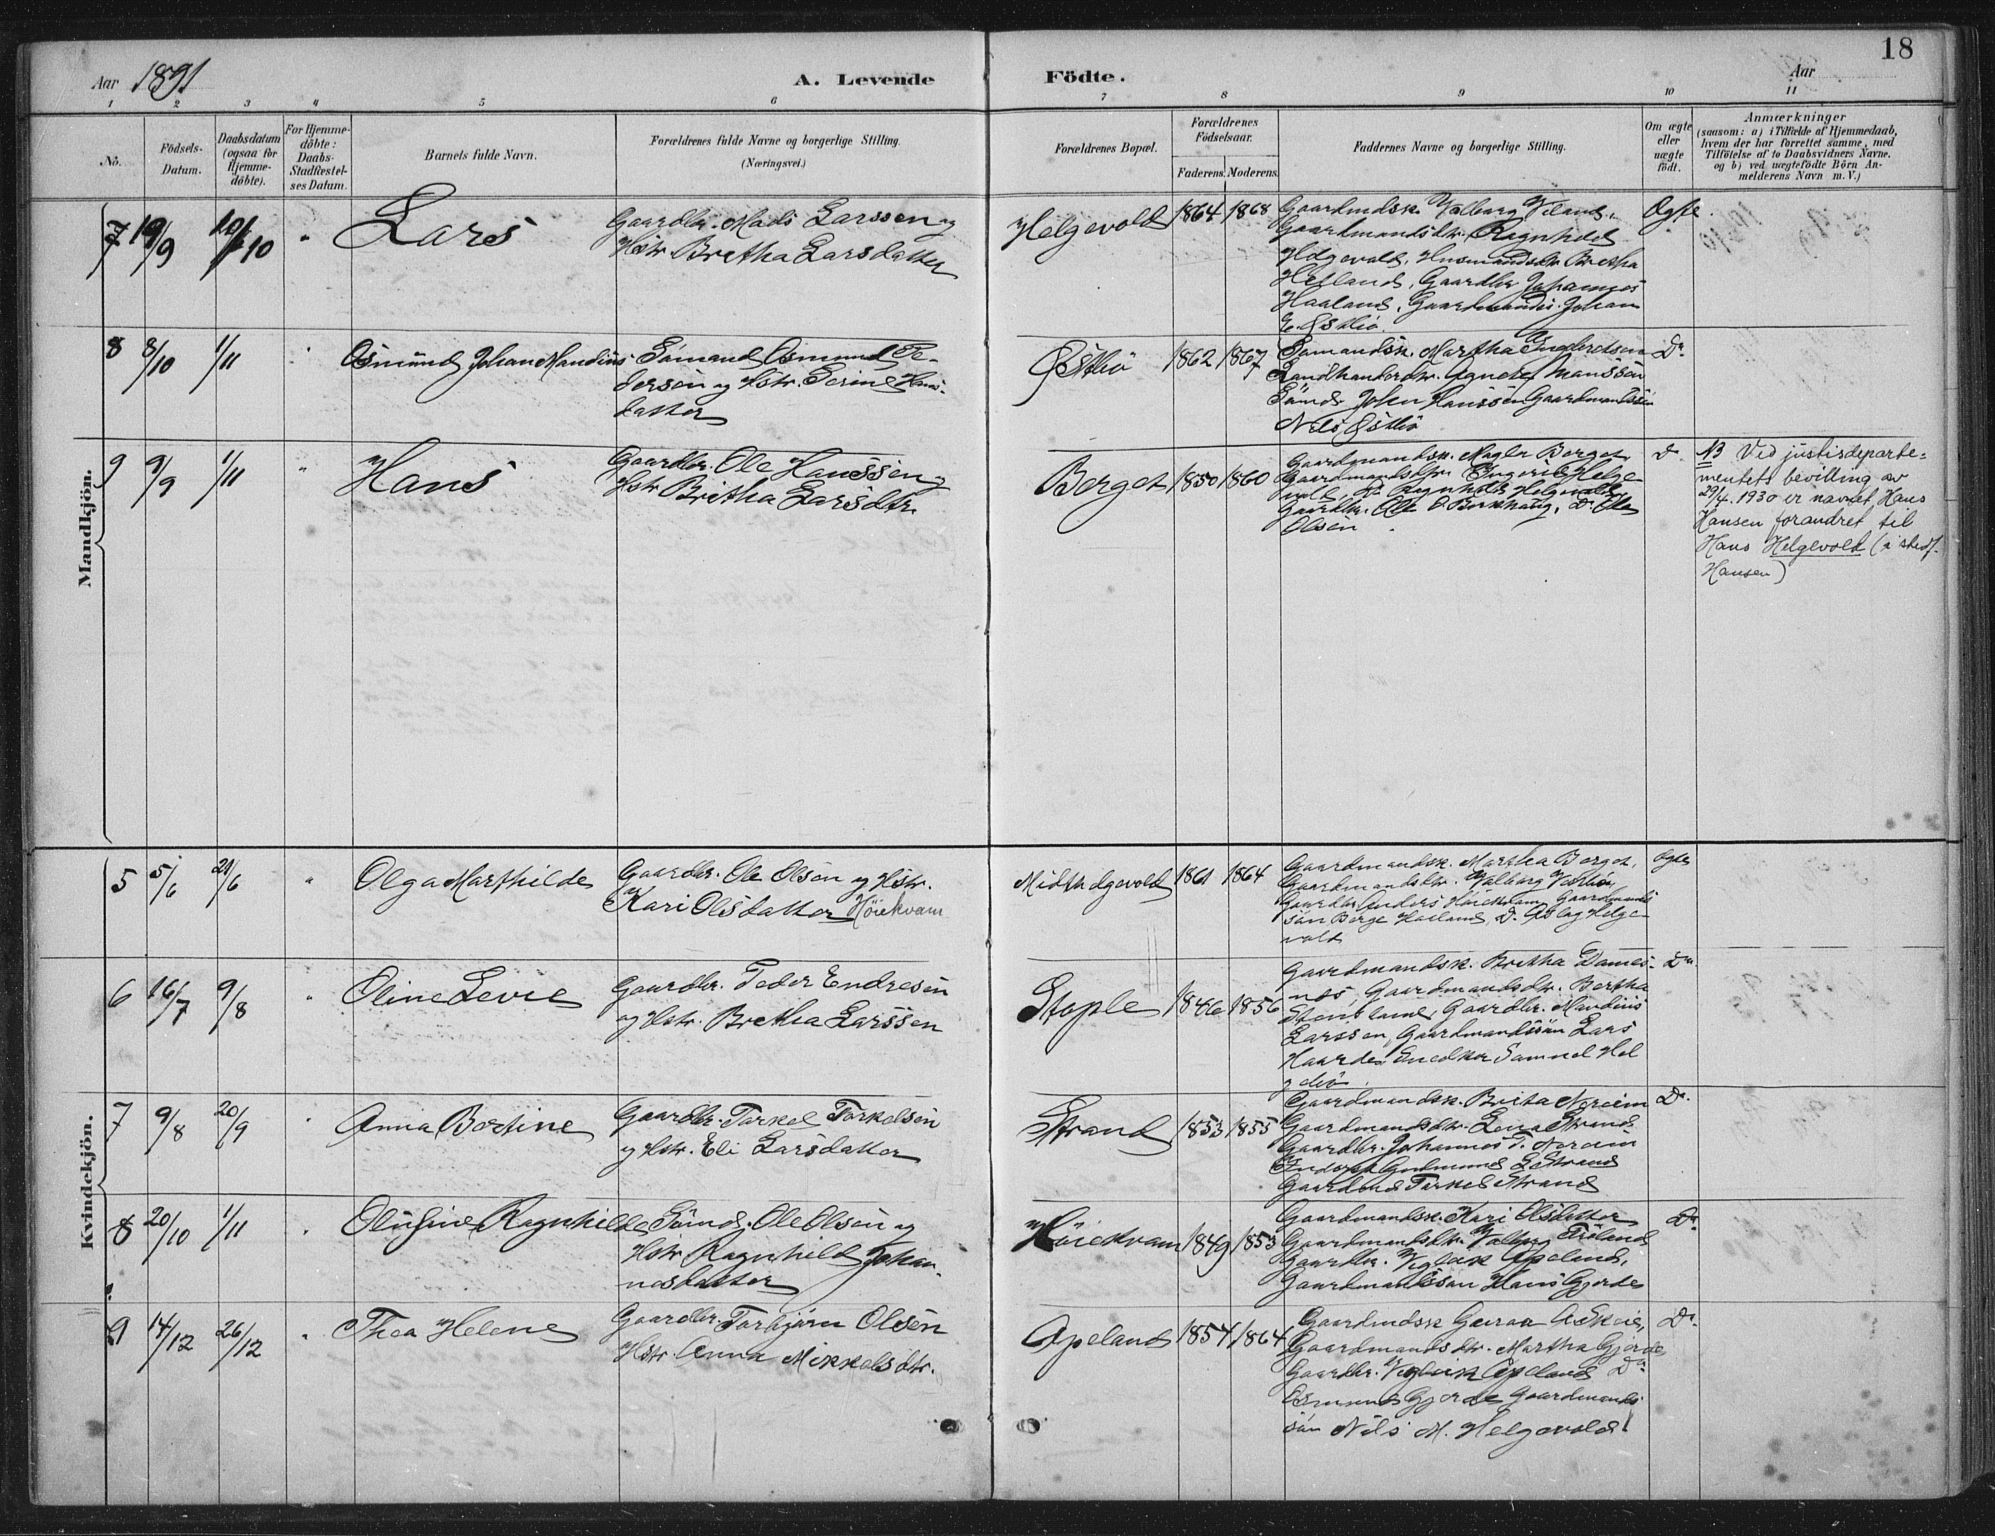 18
Aar 1891
A. Levende Födte.
Aar
1 2 3 4 5 6 7 8 9 10 11
No.
Födsels-Datum.
Daabsdatum (ogsaa for Hjemme-döbte).
For Hjemme-döbte: Daabs-Stadfæstel-ses Datum.
Barnets fulde Navn.
Forældrenes fulde Navne og borgerlige Stilling. (Næringsvei.)
Forældrenes Bopæl.
Forældrenes Födselsaar.
Faderens. Moderens.
Faddernes Navne og borgerlige Stilling.
Om ægte eller uægte födt.
Anmærkninger
(saasom: a) i Tilfælde af Hjemmedaab,
hvem der har forrettet samme, med
Tilföielse af to Daabsvidners Navne,
og b) ved uægtefödte Börn An-
melderens Navn m. V.)
Mandkjön.
7 19/9 10/10 " Lars
Gaardbr. Mads Larssen og
Hstr. Bretha Larsdatter
Helgevold 1864 1868
Gaardmdsk. Valborg
Gaardmandsdtr. Ragnhild
Helgevold, Husmandsdtr Bretha
Hetland, Gaardbr Johannes
Haaland, Gaardmands. Johan
E. Østhiø
Ægte
8 8/10 1/11 " Osmund Johan Mandius
Sömand Osmund Pe-
dersen og Hstr. Serine Hans-
datter
Østhiø 1862 1867
Sömandsk. Martha
Landhandlerdtr. Agnete Monssen
Sömd. John Hanssen Gaardmandssön
Nils Østhiø
Do
9 9/9 1/11 " Hans
Gaardbr. Ole Hanssen og
Hstr. Britha Larsdtr.
Berget 1850 1860
Gaardmandsk. Berget
Gaardmandsdtr. Ingerid Helge-
vold, Do Ragnhild Helgevold
Gaardbr. Ole O Birkhaug, Do Ole
Olsen
Do
NB Ved justisdeparte-
mentets bevilling av
29/4. 1930 er navnet Hans
Hansen forandret til
Hans Helgevold (i stedf.
Hansen)
Kvindekjön.
5 5/6 21/6 " Olga Marthilde
Gaardbr. Ole Olsen og Hstr.
Kari Olsdatter Höiekvam
Midthelgevold 1861 1864
Gaardmandsk. Martha Berget,
Gaardmandsdtr. Valborg
Gaardbr Anders Höiekvam Gaardmands
sön Berge Haaland, Do Aslag Helge-
vold
Ægte
6 16/7 9/8 " Oline Sevie
Gaardbr. Peder Endresen
og Hstr. Bretha Larssen
Stople 1846 1856
Gaardmandsk. Bretha Dames-
nes, Gaardmandsdtr. Bertha
Gaardbr. Mandius
Larssen, Gaardmandssön Lars
Samuel Hel
Do
7 9/8 20/9 " Anna Bertine
Gaardbr. Torkel Torkelsen
og Hstr. Eli Larsdatter
Strand 1853 1855
Gaardmandsk. Brita Noreim
Gaardmandsdtr. Lena Strand
Gaardbr. Johannes T. Noreim
Gudmund L Strand
Gaardmd Torkel Strand
Do
8 20/10 1/11 " Olufine Ragnhilde
Sömd. Ole Olsen og
Hstr Ragnhild Johan-
nesdatter
Höiekvam 1849 1853
Gaardmandsk. Kari Olsdatter
Gaardmandsdtr. Valborg
Gaardbr. Vigleik Apeland,
Gaardmandssön Hans Gjerde
Do
9 14/12 26/12 " Thea Helene
Gaardbr. Torbjörn Olsen
Hstr. Anna Mikkelsdtr.
Apeland 1854 1864
Gaardmdsk Askvig,
Gaardmandsdtr. Martha Gjerde
Gaardbr. Vigleik Apeland Do
Osmund Gjerde Gaardmands
sön Nils M. Helgevold
Do